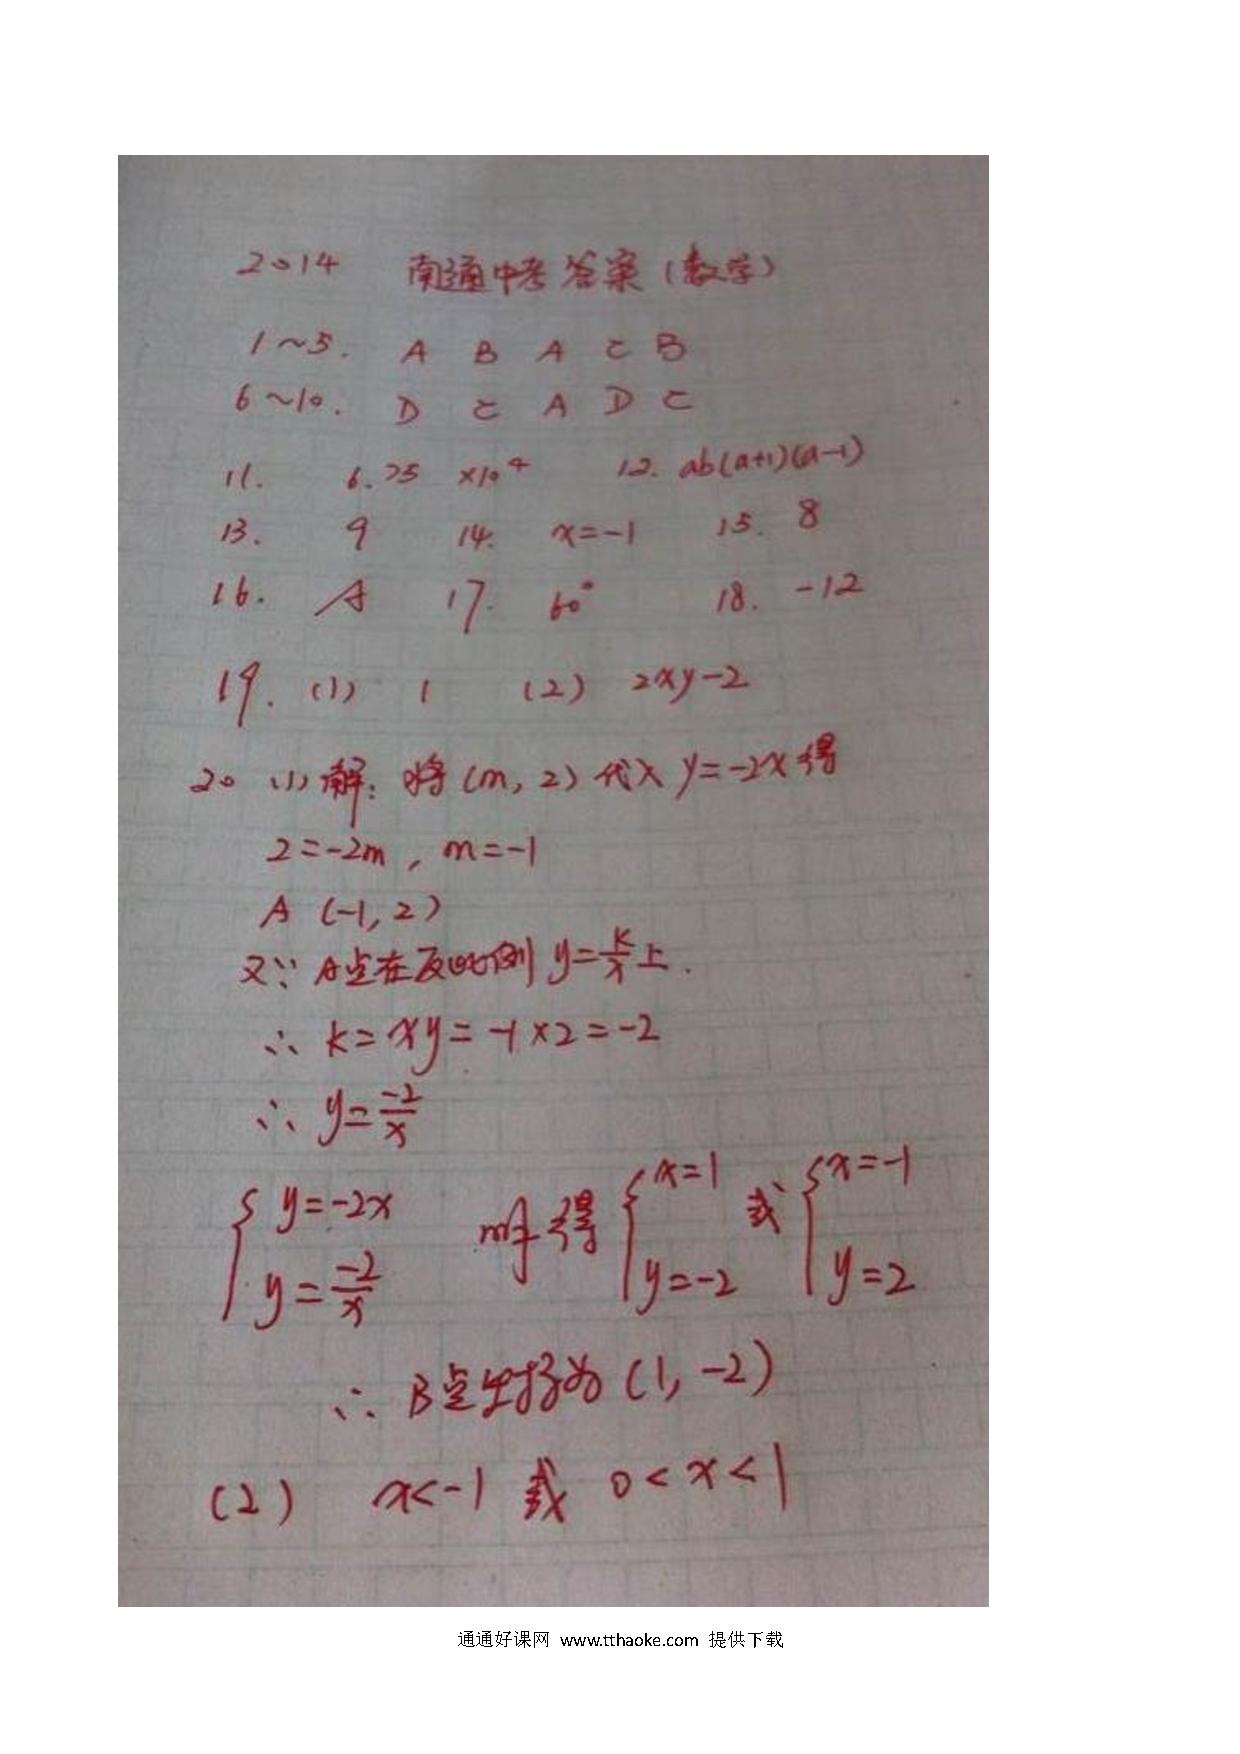 2014 南通中考答案(数学)
1~5. A B A C B
6~10. D C A D C
11. 6.75 ×10⁴ 12. ab(a+1)(a-1)
13. 9 14. x=-1 15. 8
16. A 17. 60° 18. -12
19. (1) 1 (2) 2xy-2
20 (1) 解: 将(m, 2) 代入 y=-2x得
2=-2m , m=-1
A (-1, 2)
又∵ A点在反比例 y=k/x上.
∴ k=xy=-1×2=-2
∴ y=-2/x
{ y=-2x 解得 { x=1 或 { x=-1
y=-2/x y=-2 y=2
∴ B点坐标为 (1, -2)
(2) x<-1 或 0<x<1
通通好课网 www.tthaoke.com 提供下载